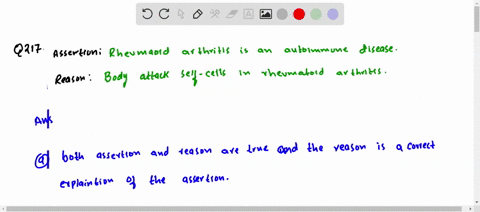 Q217. Assertion: Rheumatoid arthritis is an autoimmune disease.
Reason: Body attack self-cells in rheumatoid arthritis.
Ans
(a) both assertion and reason are true and the reason is a correct
explaintion of the assertion.